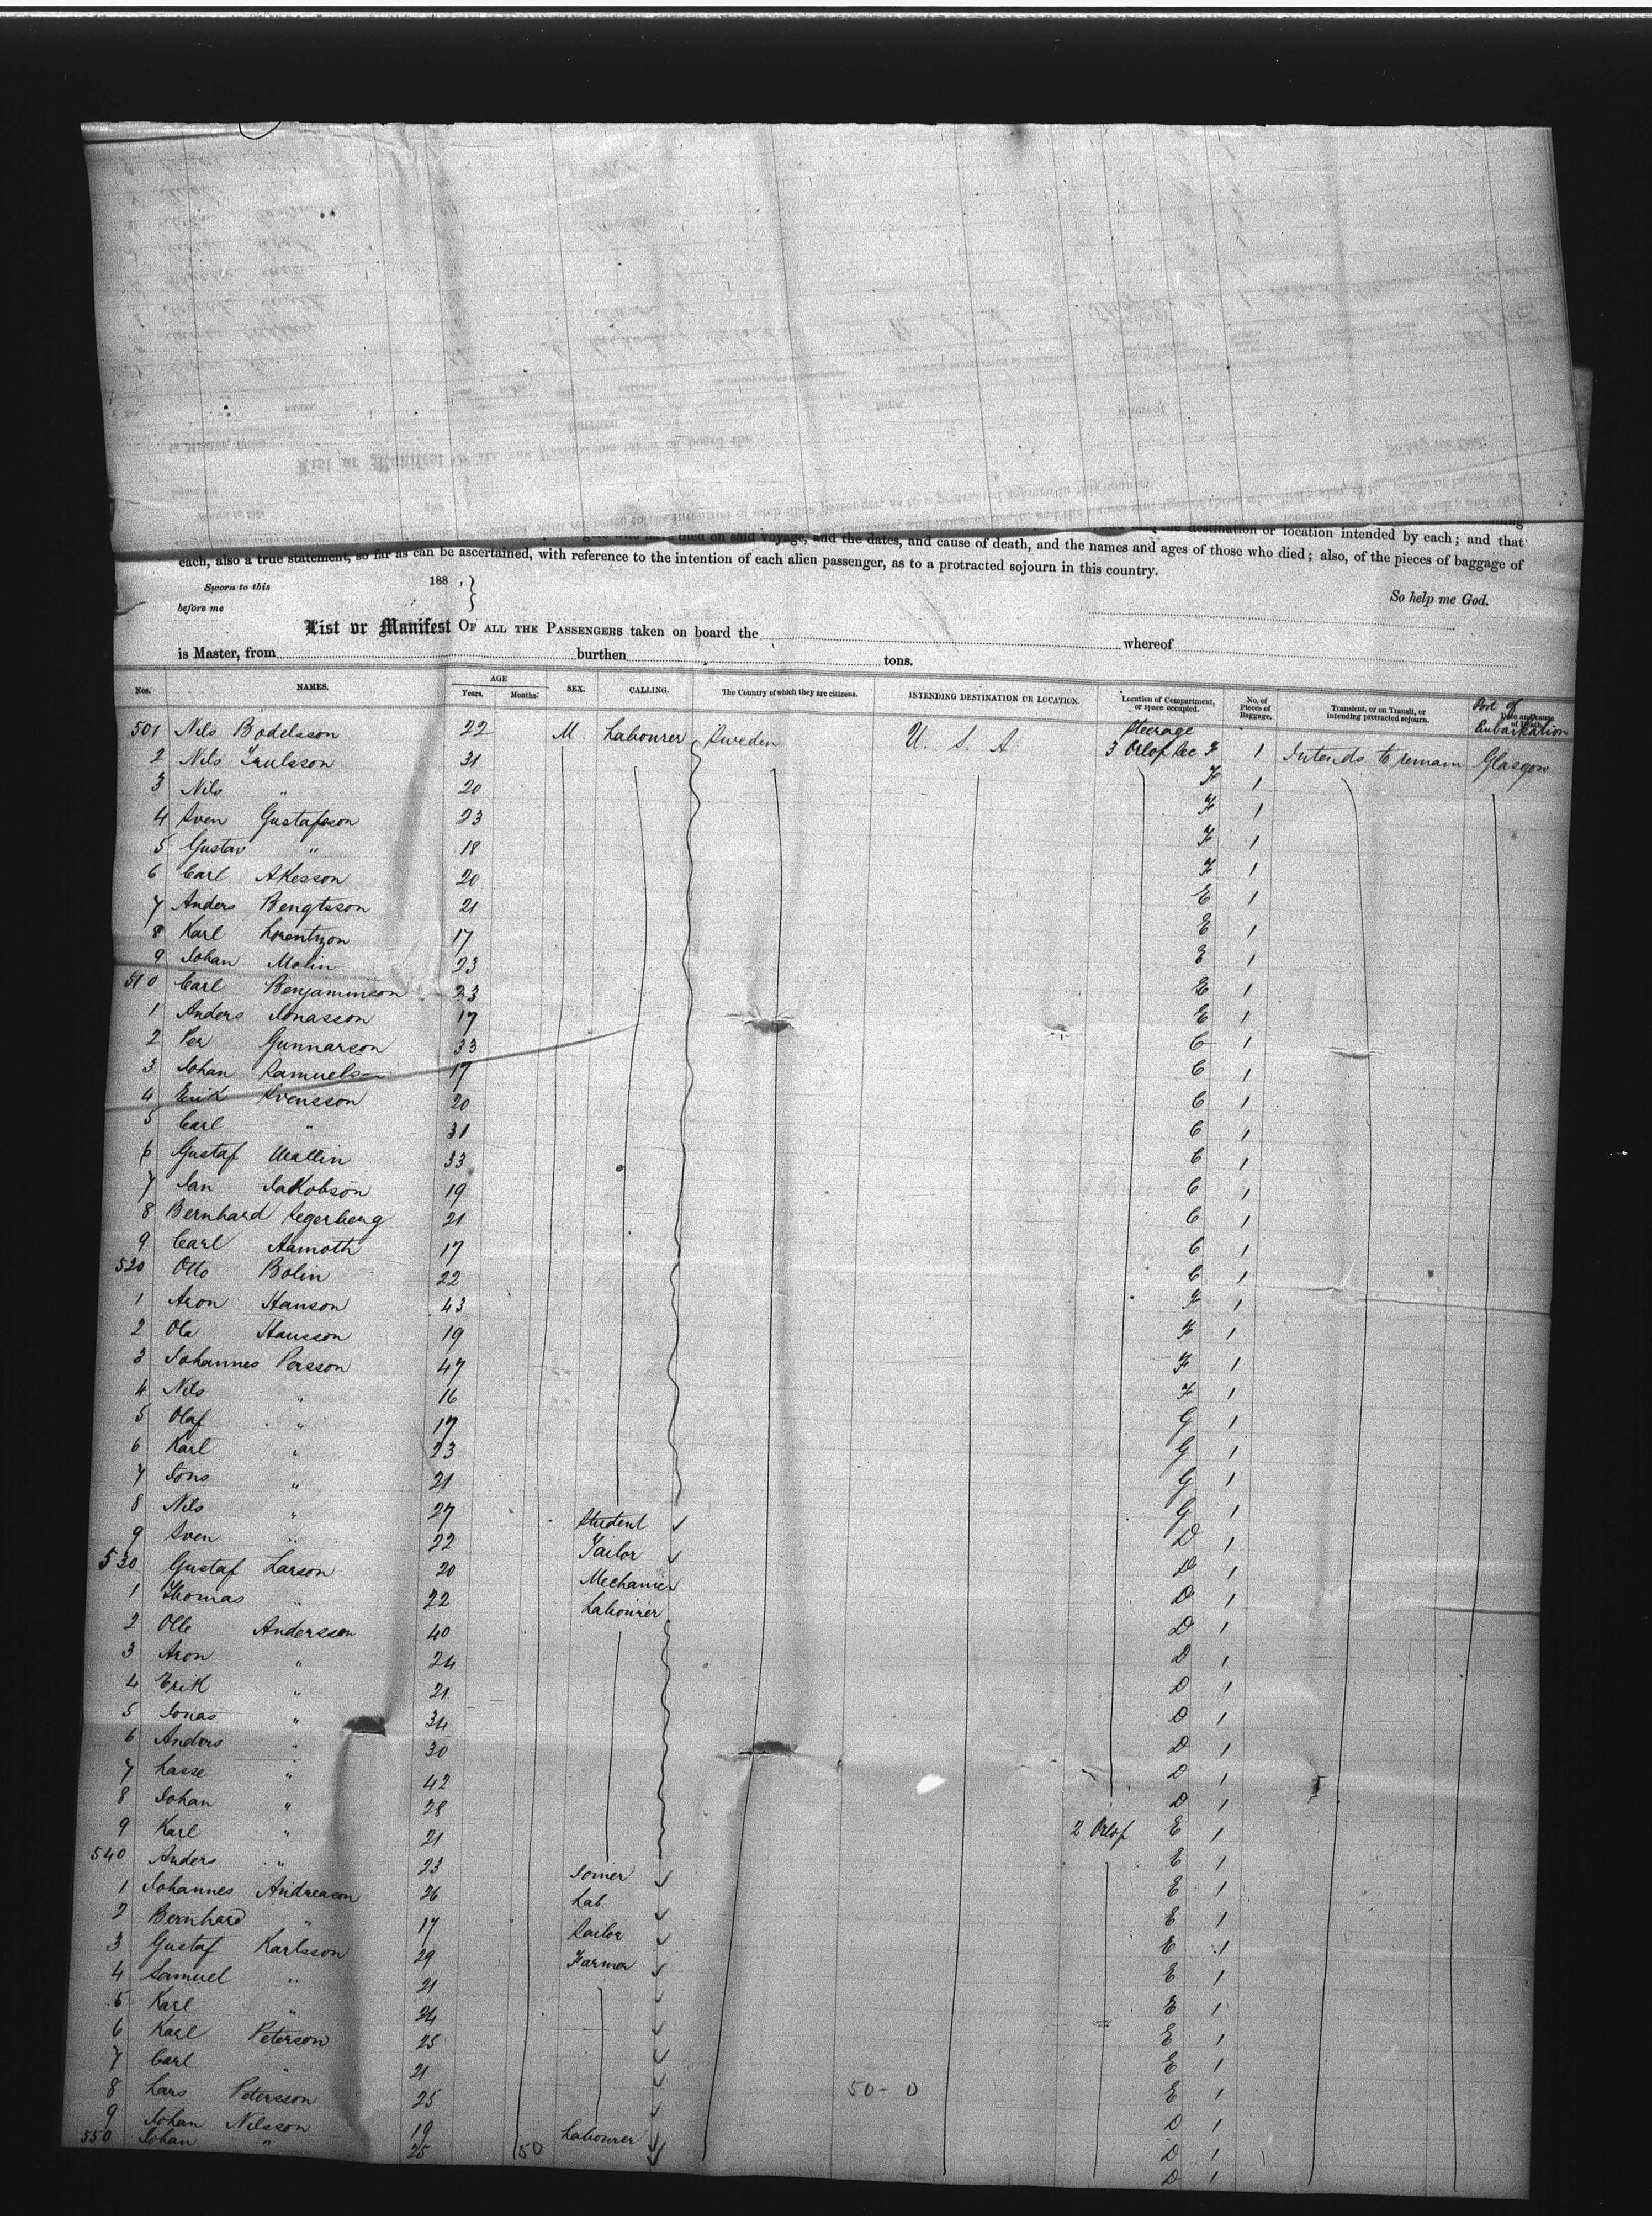 destination or location intended by each; and that
died on said voyage, and the dates, and cause of death, and the names and ages of those who died; also, of the pieces of baggage of
each, also a true statement, so far as can be ascertained, with reference to the intention of each alien passenger, as to a protracted sojourn in this country.
Sworn to this 188 , }
before me
So help me God.
List or Manifest OF ALL THE PASSENGERS taken on board the whereof
is Master, from burthen tons.
Nos. NAMES. AGE Years. Months. SEX. CALLING. The Country of which they are citizens. INTENDING DESTINATION OR LOCATION. Location of Compartment, or space occupied. No. of Pieces of Baggage. Transient, or on Transit, or intending protracted sojourn. Date and cause of Death. Port of Embarkation
501 Nils Bodelsson 22 M Labourer Sweden U. S. A Steerage 3 Orlop Sec F 1 Intends to remain Glasgow
2 Nils Trulsson 31 F 1
3 Nils " 20 F 1
4 Sven Gustafsson 23 F 1
5 Gustav " 18 F 1
6 Carl Akesson 20 E 1
7 Anders Bengtsson 21 E 1
8 Karl Lorentzon 17 E 1
9 Johan Molin 23 E 1
510 Carl Benjaminson 23 E 1
1 Anders Jonasson 17 C 1
2 Per Gunnarson 33 C 1
3 Johan Samuelson 17 C 1
4 Erik Svensson 20 C 1
5 Carl " 31 C 1
6 Gustaf Wallin 33 C 1
7 Jan Jakobson 19 C 1
8 Bernhard Segerberg 21 C 1
9 Carl Aamoth 17 C 1
520 Otto Bolin 22 F 1
1 Aron Hanson 43 F 1
2 Ola Hansson 19 F 1
3 Johannes Persson 47 F 1
4 Nils " 16 G 1
5 Olaf " 17 G 1
6 Karl " 23 G 1
7 Jons " 21 G 1
8 Nils " 27 Student D 1
9 Sven " 22 Tailor D 1
530 Gustaf Larson 20 Mechanic D 1
1 Thomas " 22 Labourer D 1
2 Olle Andersson 40 D 1
3 Aron " 24 D 1
4 Erik " 21 D 1
5 Jonas " 34 D 1
6 Anders " 30 D 1
7 Lasse " 42 D 1
8 Johan " 28 2 Orlop E 1
9 Karl " 21 E 1
540 Anders " 23 Joiner E 1
1 Johannes Andreason 26 Lab. E 1
2 Bernhard " 17 Sailor E 1
3 Gustaf Karlsson 29 Farmer E 1
4 Samuel " 21 E 1
5 Karl " 24 E 1
6 Karl Peterson 25 E 1
7 Carl " 21 E 1
8 Lars Petersson 25 50-0 D 1
9 Johan Nilsson 19 Labourer D 1
550 Johan " 25 50 D 1